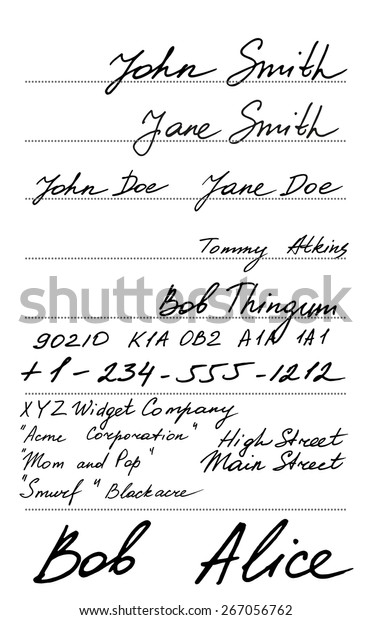 John Smith
Jane Smith
John Doe Jane Doe
Tommy Atkins
Bob Thingum
9021D K1A OB2 A1A 1A1
+1-234-555-1212
XYZ Widget Company
"Acme Corporation" High Street
"Mom and Pop" Main Street
"Smurf" Blackacre
Bob Alice
shutterstock
www.shutterstock.com · 267056762